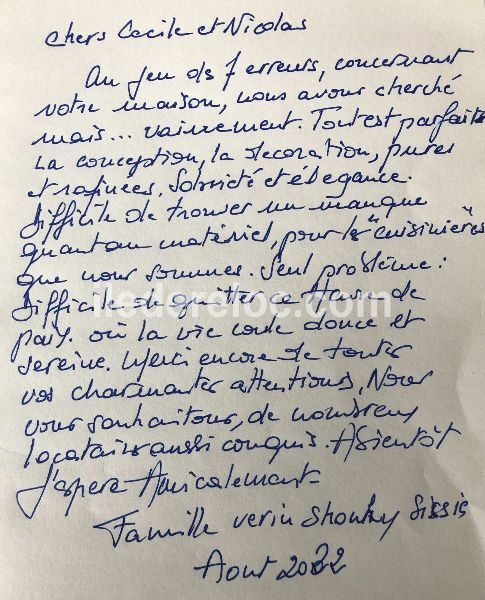 Chers Cecile et Nicolas
Au jeu des 7 erreurs, concernant
votre maison, nous avons cherché
mais... vainement. Tout est parfait.
La conception, la decoration, pures
et rafinees. Sobriété et élegance.
Difficile de trouver un manque
quant au matériel, pour les "cuisinières"
que nous sommes. Seul problème :
iledereloc.com
Difficile de quitter ce Havre de
paix. où la vie coule douce et
sereine. Merci encore de toutes
vos charmantes attentions, Nous
vous souhaitons, de nombreux
locataires aussi conquis. A bientôt
J'espere Amicalement
Famille verin
Aout 2022